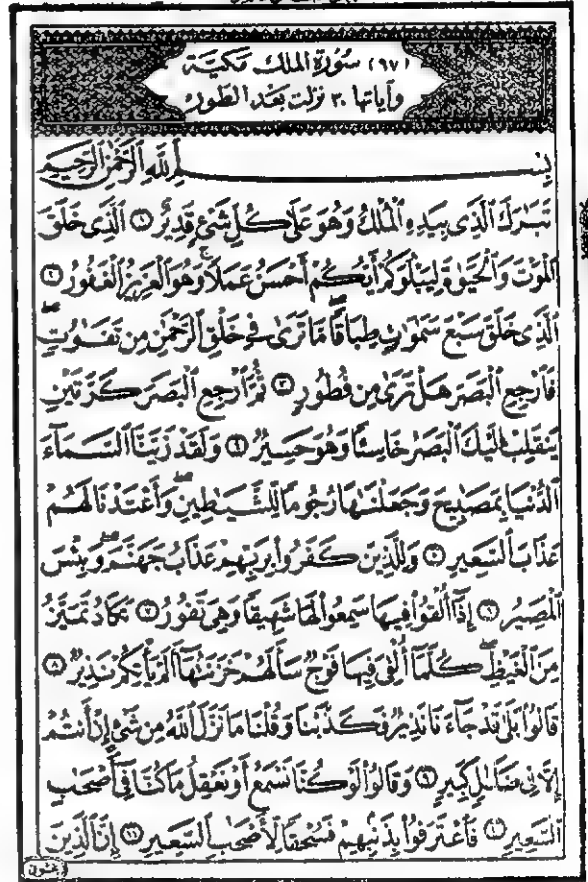 (٦٧) سُورَةِ المُلك مَكيَّة
وآياتها ٣٠ نزلت بعد الطور
بِسْمِ ٱللَّهِ ٱلرَّحْمَٰنِ ٱلرَّحِيمِ
تَبَٰرَكَ ٱلَّذِى بِيَدِهِ ٱلْمُلْكُ وَهُوَ عَلَىٰ كُلِّ شَىْءٍ قَدِيرٌ ١ ٱلَّذِى خَلَقَ
ٱلْمَوْتَ وَٱلْحَيَوٰةَ لِيَبْلُوَكُمْ أَيُّكُمْ أَحْسَنُ عَمَلًا ۚ وَهُوَ ٱلْعَزِيزُ ٱلْغَفُورُ ٢
ٱلَّذِى خَلَقَ سَبْعَ سَمَٰوَٰتٍ طِبَاقًا ۖ مَّا تَرَىٰ فِى خَلْقِ ٱلرَّحْمَٰنِ مِن تَفَٰوُتٍ ۖ
فَٱرْجِعِ ٱلْبَصَرَ هَلْ تَرَىٰ مِن فُطُورٍ ٣ ثُمَّ ٱرْجِعِ ٱلْبَصَرَ كَرَّتَيْنِ
يَنقَلِبْ إِلَيْكَ ٱلْبَصَرُ خَاسِئًا وَهُوَ حَسِيرٌ ٤ وَلَقَدْ زَيَّنَّا ٱلسَّمَآءَ
ٱلدُّنْيَا بِمَصَٰبِيحَ وَجَعَلْنَٰهَا رُجُومًا لِّلشَّيَٰطِينِ ۖ وَأَعْتَدْنَا لَهُمْ
عَذَابَ ٱلسَّعِيرِ ٥ وَلِلَّذِينَ كَفَرُوا۟ بِرَبِّهِمْ عَذَابُ جَهَنَّمَ ۖ وَبِئْسَ
ٱلْمَصِيرُ ٦ إِذَآ أُلْقُوا۟ فِيهَا سَمِعُوا۟ لَهَا شَهِيقًا وَهِىَ تَفُورُ ٧ تَكَادُ تَمَيَّزُ
مِنَ ٱلْغَيْظِ ۖ كُلَّمَآ أُلْقِىَ فِيهَا فَوْجٌ سَأَلَهُمْ خَزَنَتُهَآ أَلَمْ يَأْتِكُمْ نَذِيرٌ ٨
قَالُوا۟ بَلَىٰ قَدْ جَآءَنَا نَذِيرٌ فَكَذَّبْنَا وَقُلْنَا مَا نَزَّلَ ٱللَّهُ مِن شَىْءٍ إِنْ أَنتُمْ
إِلَّا فِى ضَلَٰلٍ كَبِيرٍ ٩ وَقَالُوا۟ لَوْ كُنَّا نَسْمَعُ أَوْ نَعْقِلُ مَا كُنَّا فِىٓ أَصْحَٰبِ
ٱلسَّعِيرِ ١٠ فَٱعْتَرَفُوا۟ بِذَنۢبِهِمْ فَسُحْقًا لِّأَصْحَٰبِ ٱلسَّعِيرِ ١١ إِنَّ ٱلَّذِينَ